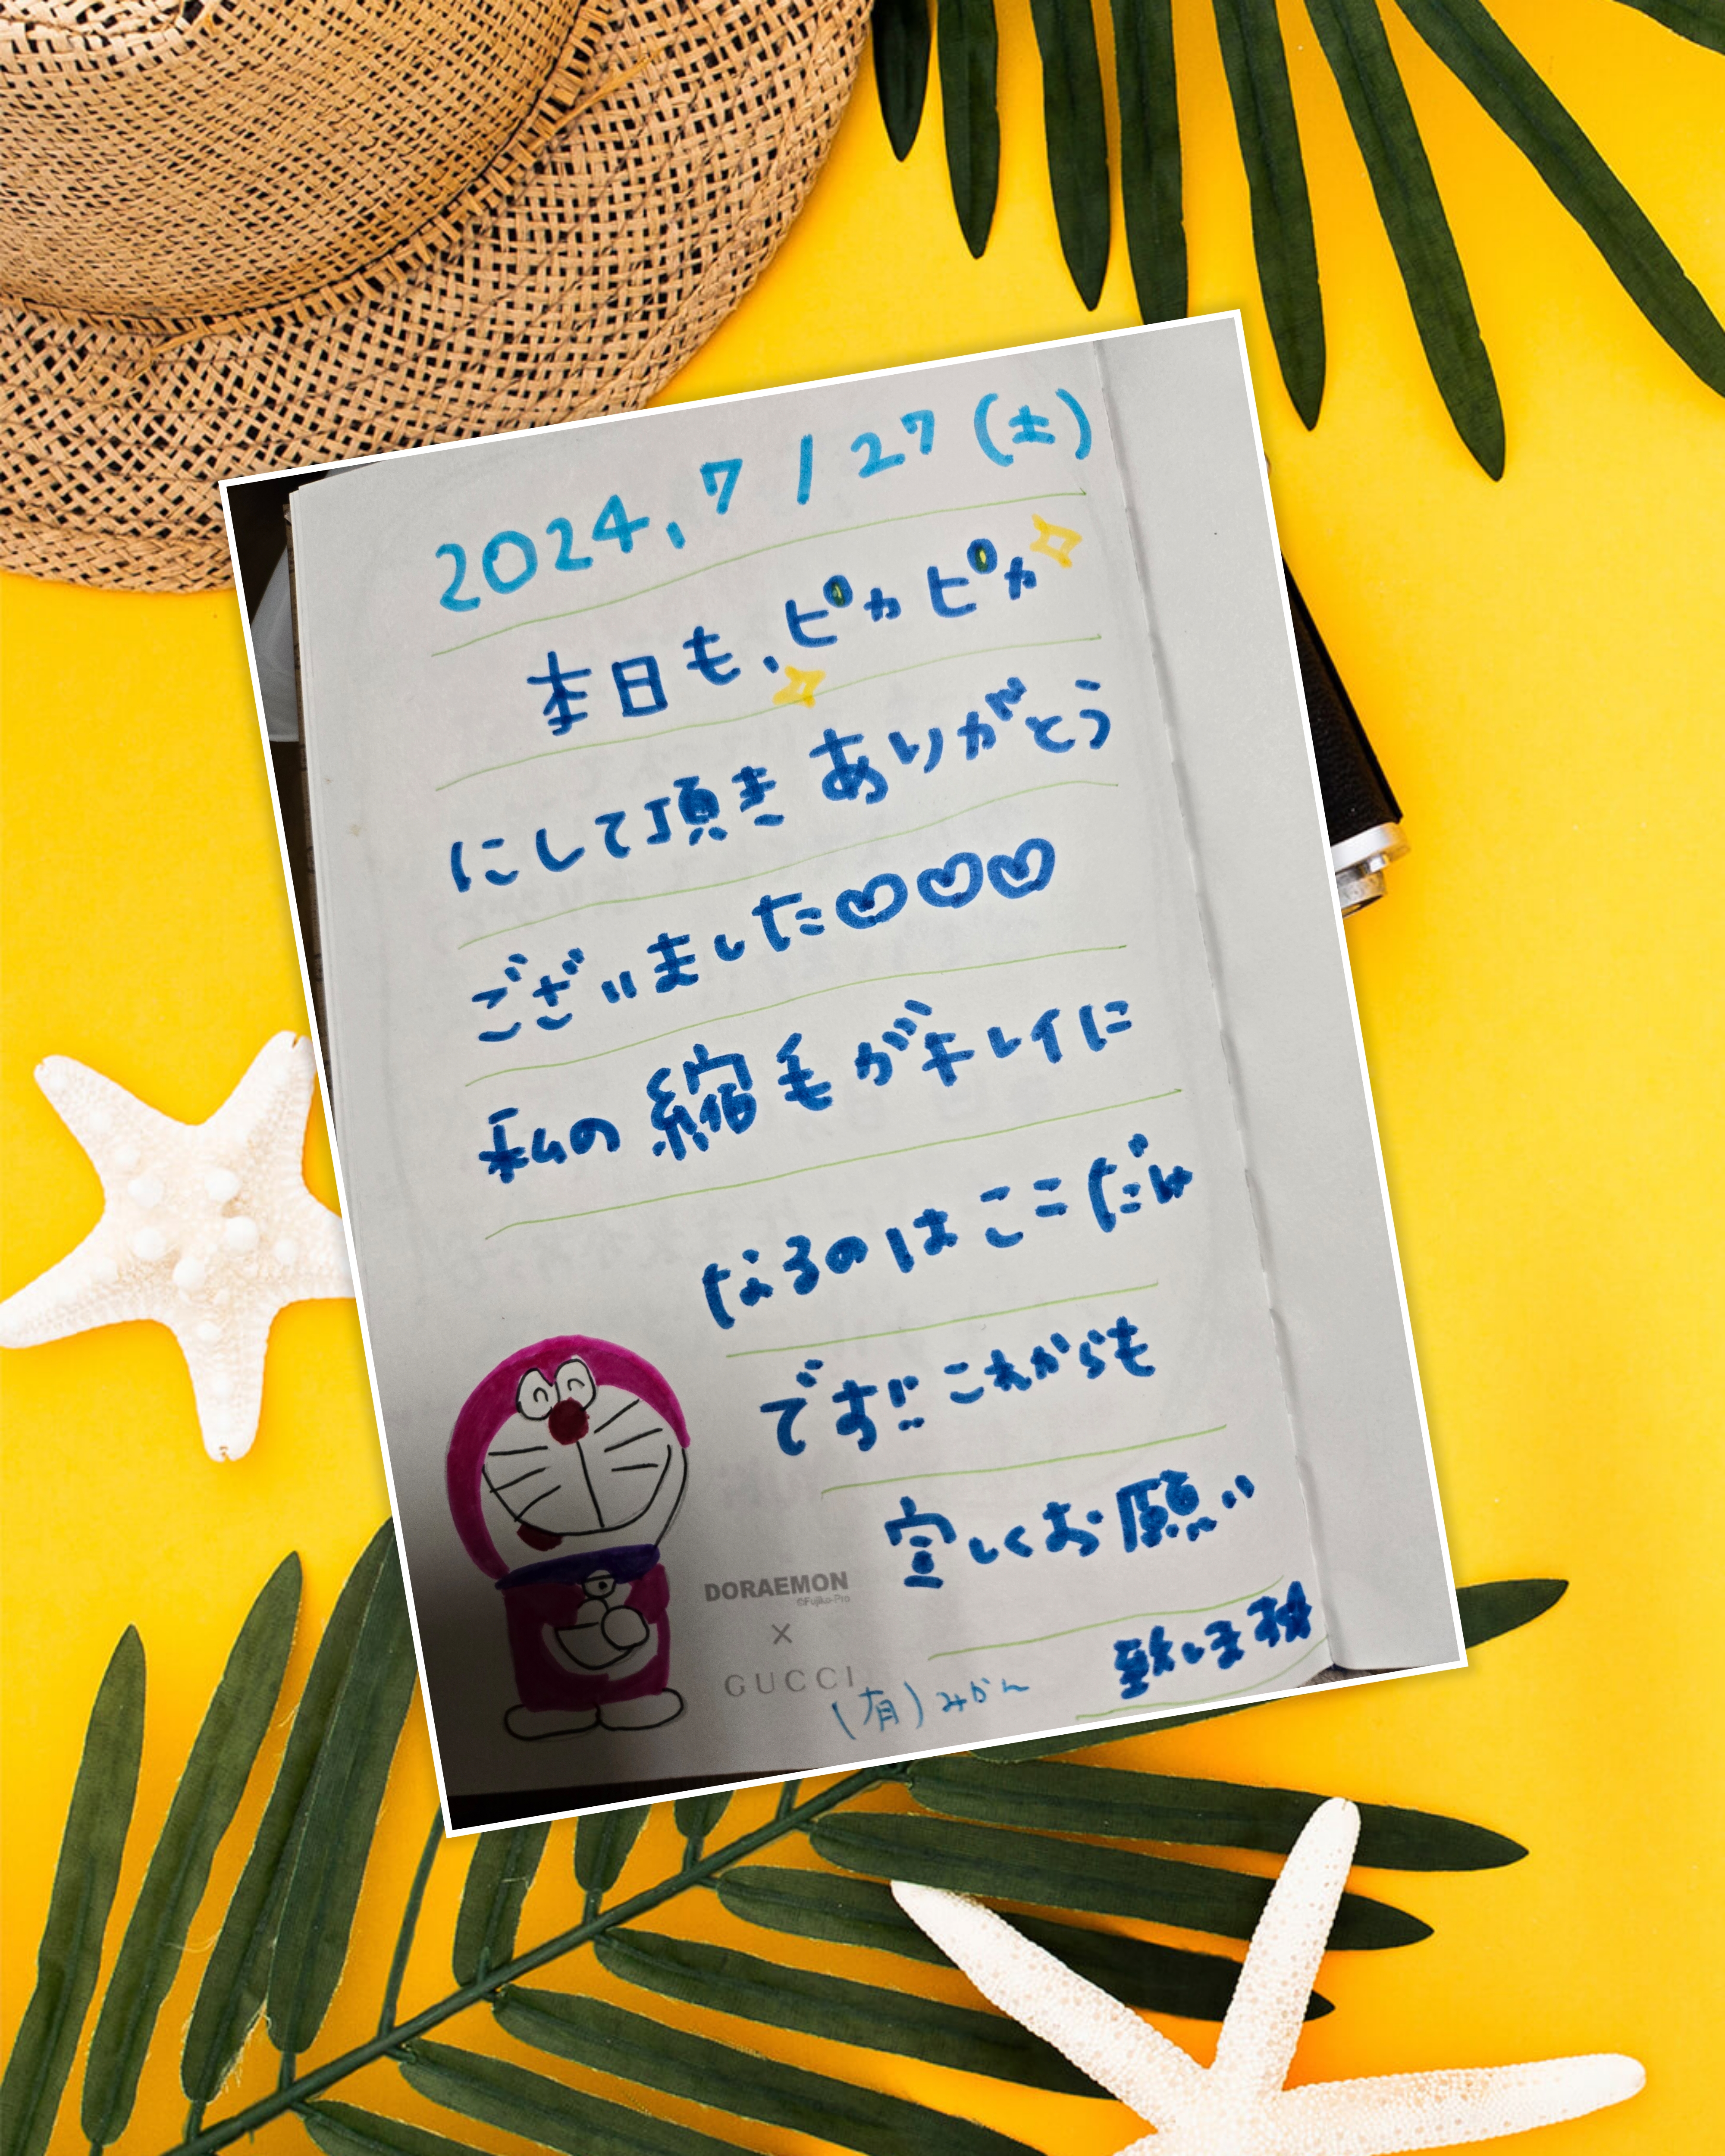 2024, 7/27 (土)
本日も、ピカピカ
にして頂き ありがとう
ございました♡♡♡
私の縮毛がキレイに
なるのはここだけ
です!! これからも
宜しくお願い
致します
DORAEMON
©Fujiko-Pro
×
GUCCI
(有)みかん